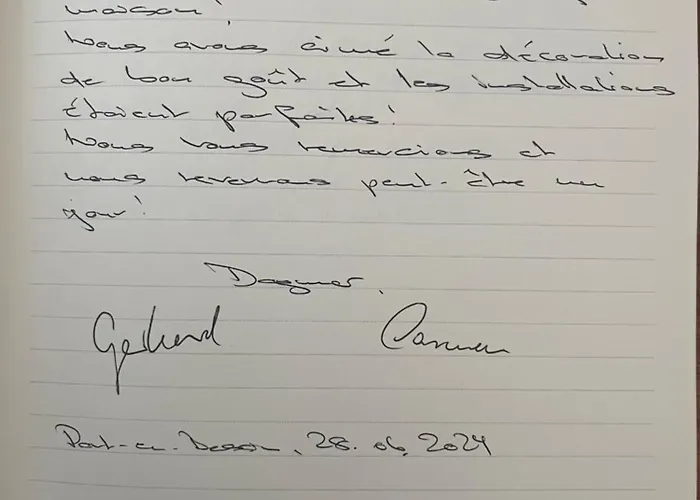 maison!
Nous avons aimé la décoration
de bon goût et les installations
étaient parfaites!
Nous vous remercions et
nous revenons peut-être un
jour!
Dagmar,
Gerhard Carmen
Port-en-Bessin, 28.06.2024